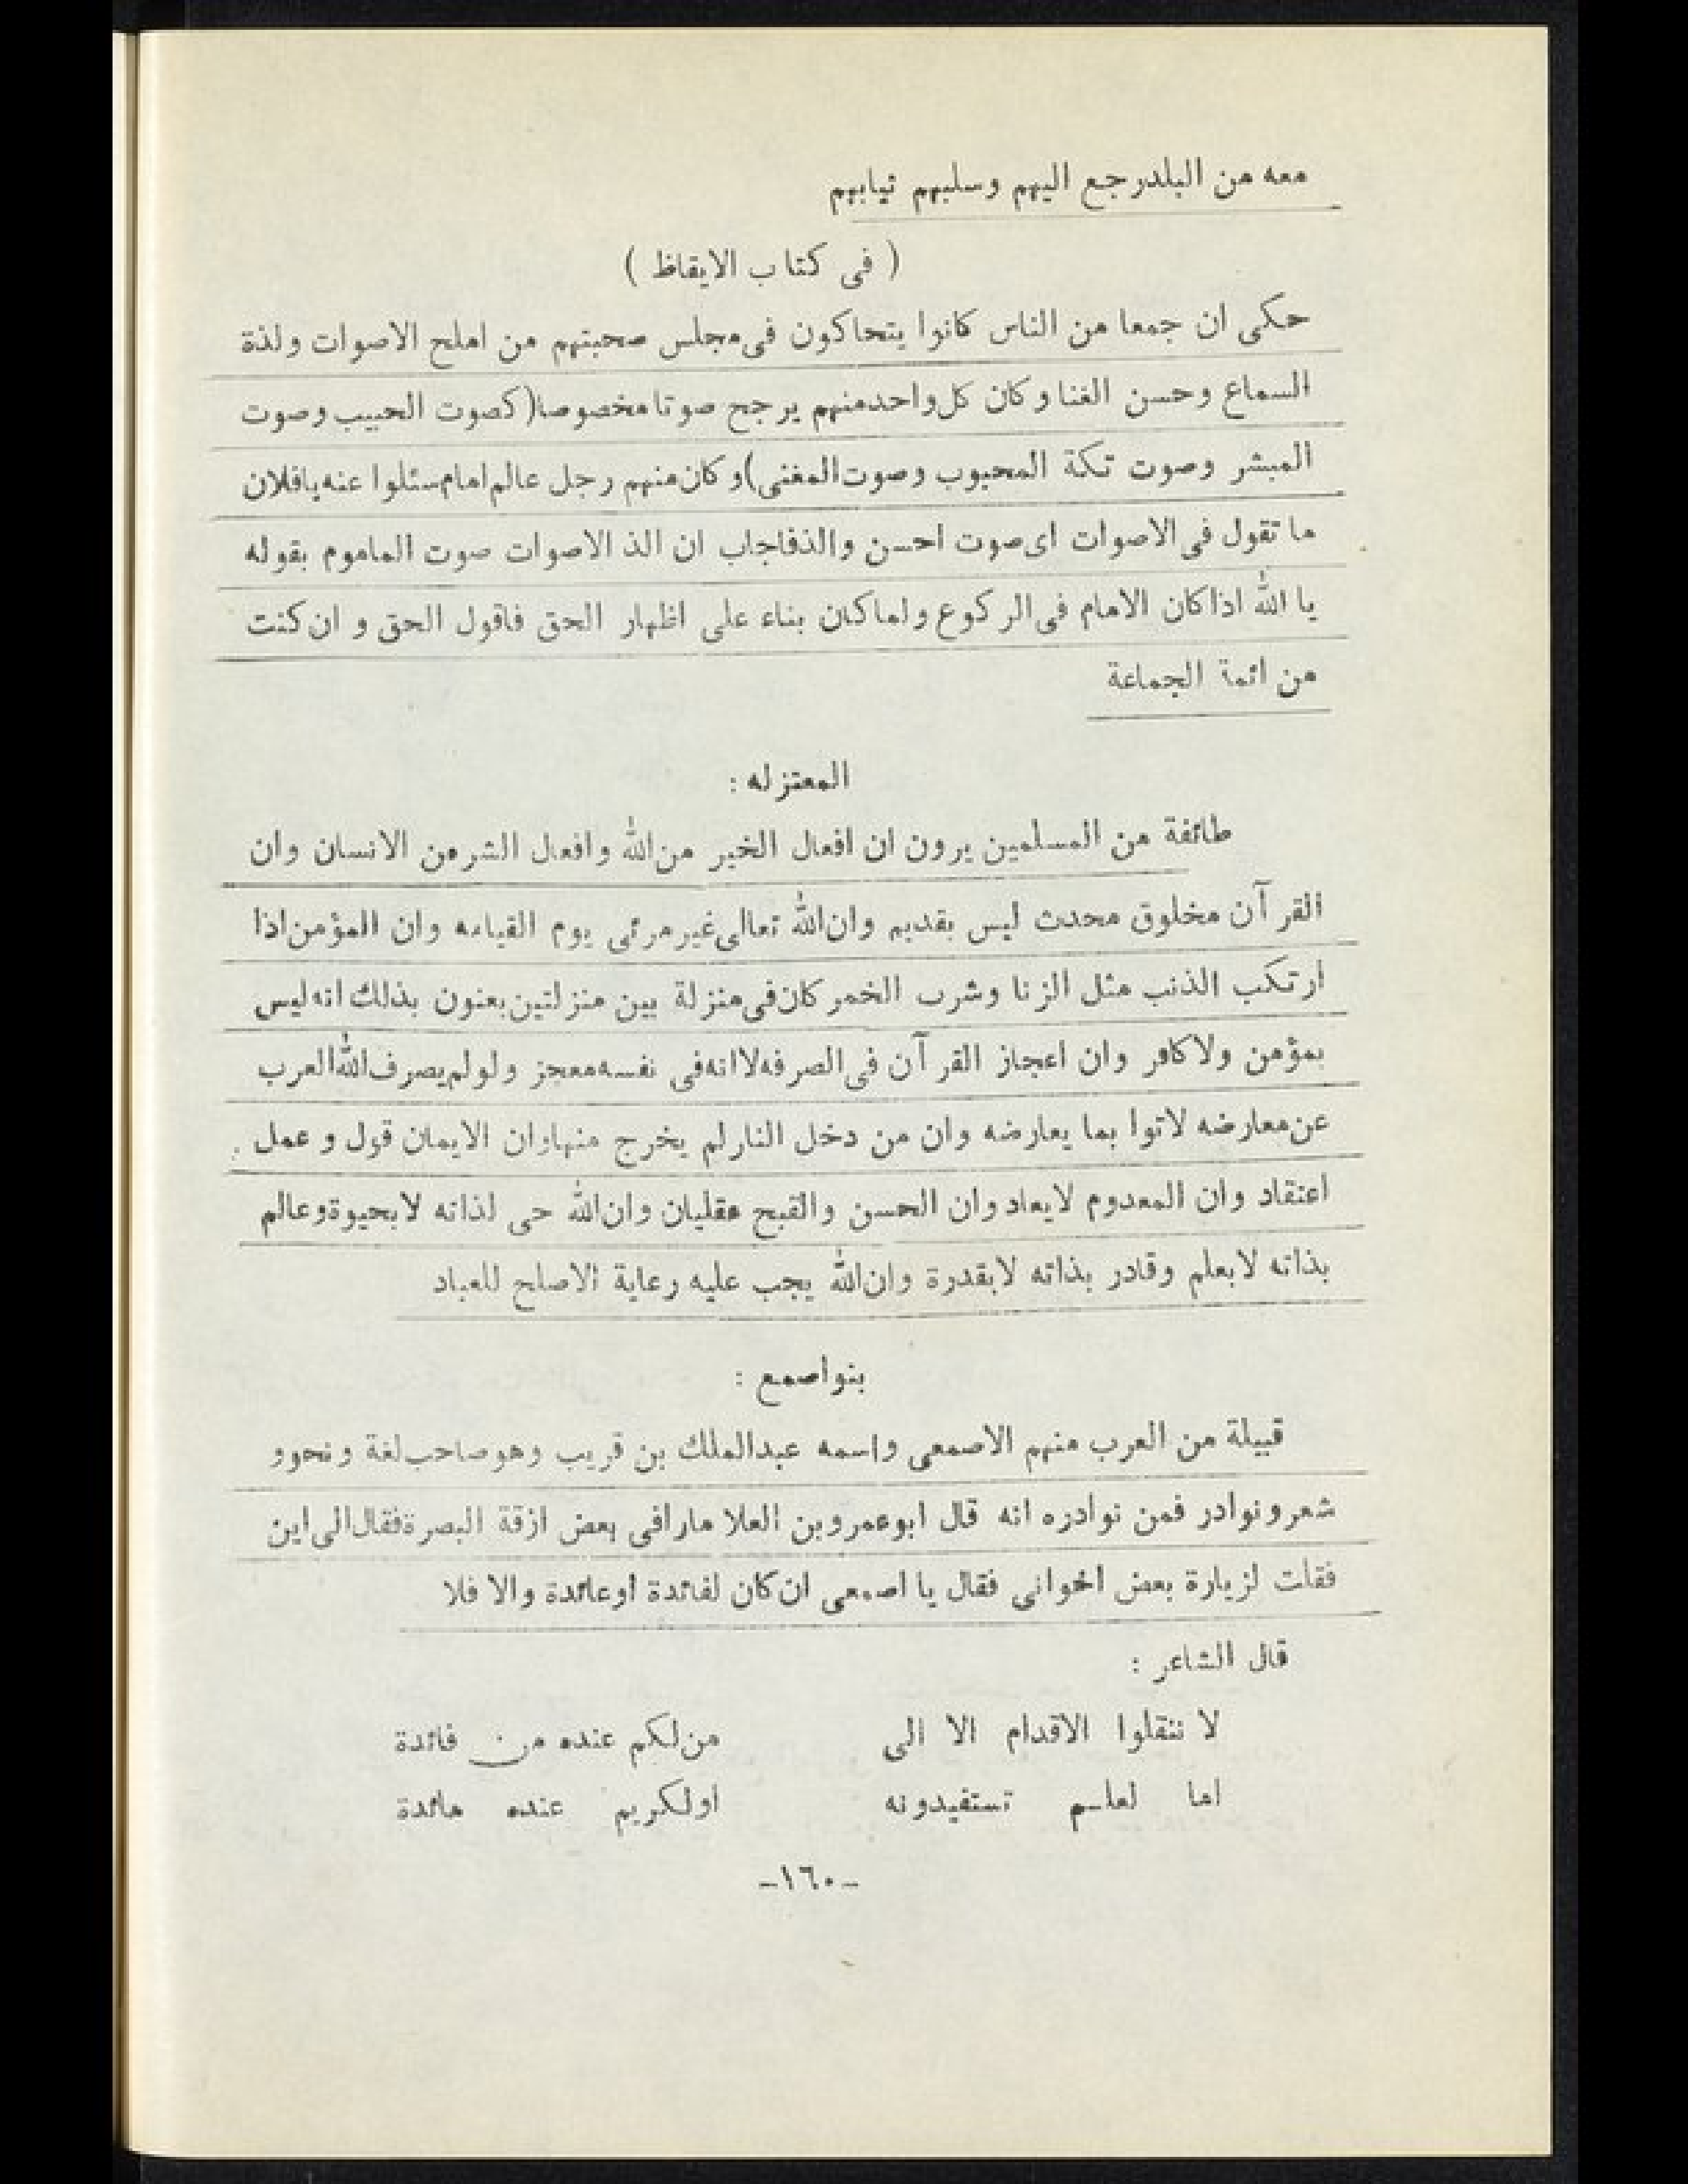 معه من البلدرجع اليهم وسلبهم ثيابهم
( فى كتاب الايقاظ )
حكى ان جمعا من الناس كانوا يتحاكون فى مجلس صحبتهم من املح الاصوات ولذة
السماع وحسن الغنا وكان كل واحد منهم يرجح صوتا مخصوصا (كصوت الحبيب وصوت
المبشر وصوت تكة المحبوب وصوت المغنى) وكان منهم رجل عالم امام سئلوا عنه يافلان
ما تقول فى الاصوات اى صوت احسن والذ فاجاب ان الذ الاصوات صوت الماموم بقوله
يا الله اذا كان الامام فى الركوع ولما كان بناء على اظهار الحق فاقول الحق و ان كنت
من ائمة الجماعة
المعتزله :
طائفة من المسلمين يرون ان افعال الخير من الله وافعال الشر من الانسان وان
القرآن مخلوق محدث ليس بقديم وان الله تعالى غير مرئى يوم القيامه وان المؤمن اذا
ارتكب الذنب مثل الزنا وشرب الخمر كان فى منزلة بين منزلتين بعنون بذلك انه ليس
بمؤمن ولا كافر وان اعجاز القرآن فى الصرفه لا انه فى نفسه معجز ولو لم يصرف الله العرب
عن معارضه لاتوا بما يعارضه وان من دخل النار لم يخرج منها وان الايمان قول و عمل .
اعتقاد وان المعدوم لايعاد وان الحسن والقبح عقليان وان الله حى لذاته لا بحيوة وعالم
بذاته لا بعلم وقادر بذاته لا بقدرة وان الله يجب عليه رعاية الاصلح للعباد
بنو اصمع :
قبيلة من العرب منهم الاصمعى واسمه عبدالملك بن قريب وهو صاحب لغة و نحو و
شعر و نوادر فمن نوادره انه قال ابوعمرو بن العلا مارا فى بعض ازقة البصرة فقال الى اين
فقلت لزيارة بعض اخوانى فقال يا اصمعى ان كان لفائدة او عائدة والا فلا
قال الشاعر :
لا تنقلوا الاقدام الا الى من لكم عنده من فائدة
اما لعالم تستفيدونه او لكريم عنده مائدة
-١٦٠-